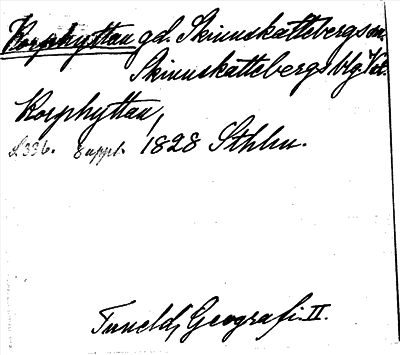 Korphyttan gd. Skinnskattebergs sn.
Skinnskattebergs blg. Vstl.
Korphyttan,
L 336. 8 uppl. 1828 Sthlm.
Tuneld, Geografi. II.